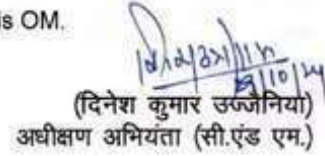 is OM.
(दिनेश कुमार उज्जैनिया)
अधीक्षण अभियंता (सी.एंड एम.)